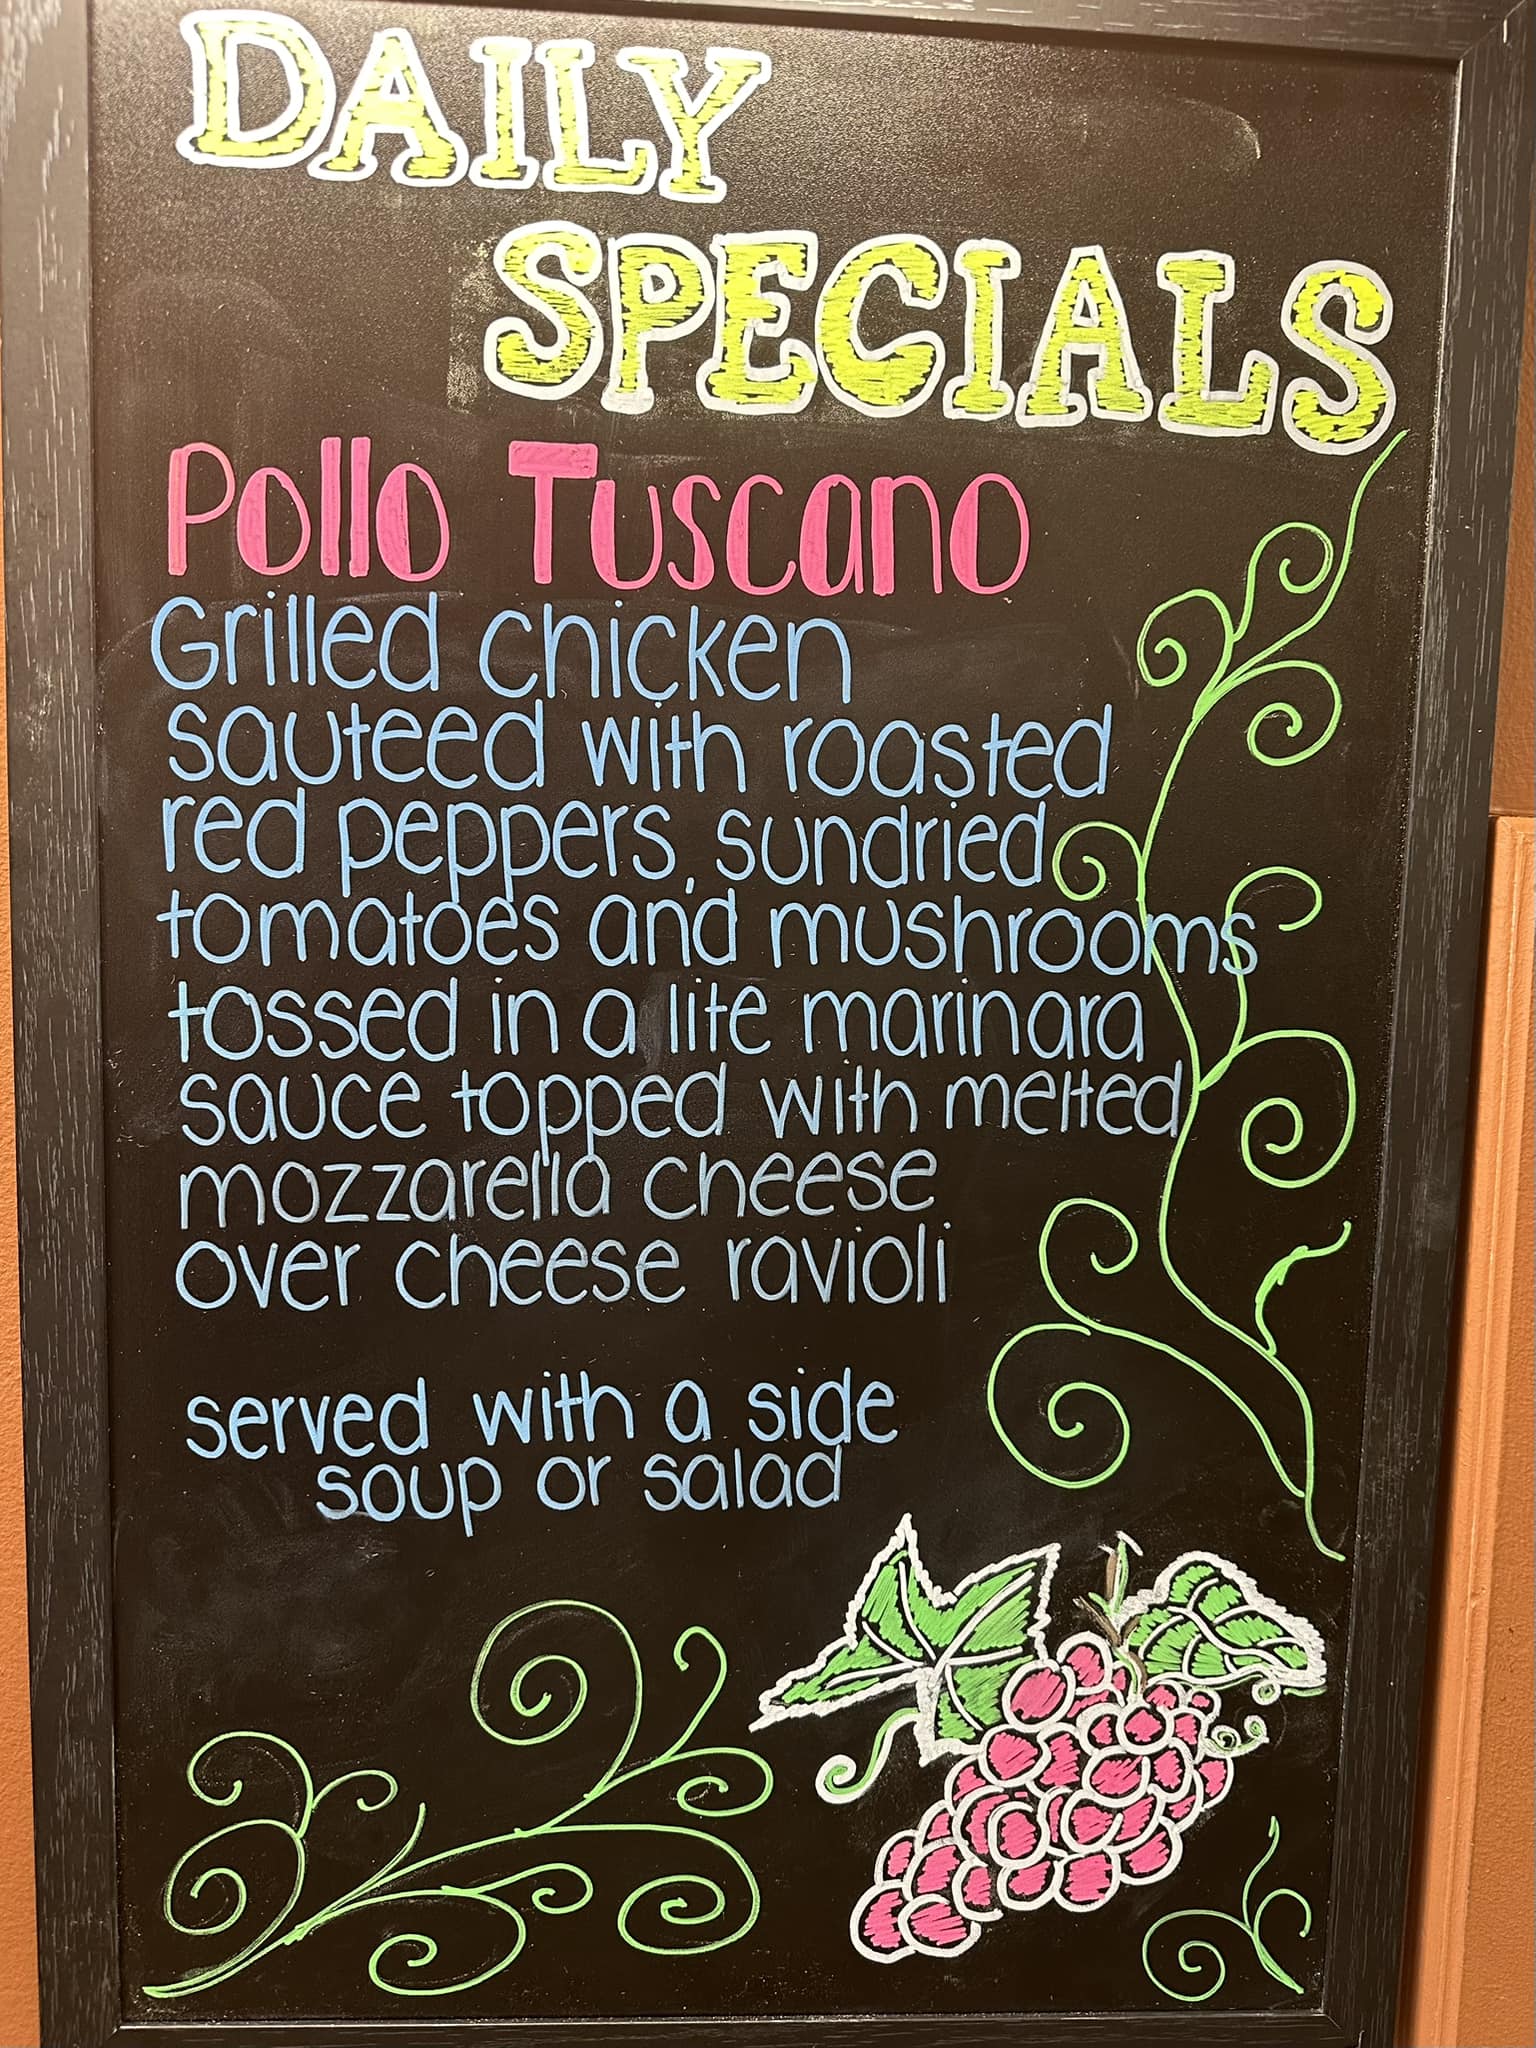 DAILY
SPECIALS
Pollo Tuscano
Grilled chicken
sauteed with roasted
red peppers, sundried
tomatoes and mushrooms
tossed in a lite marinara
sauce topped with melted
mozzarella cheese
over cheese ravioli
served with a side
soup or salad